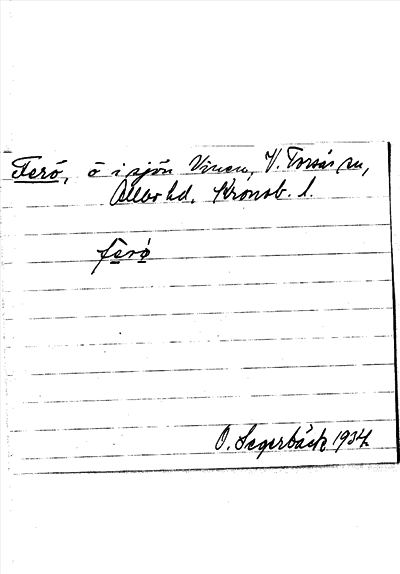 Ferö, ö i sjön Viren, V. Torsås sn,
Allbo hd, Kronob. l.
ferö
O. Segerbäck 1934